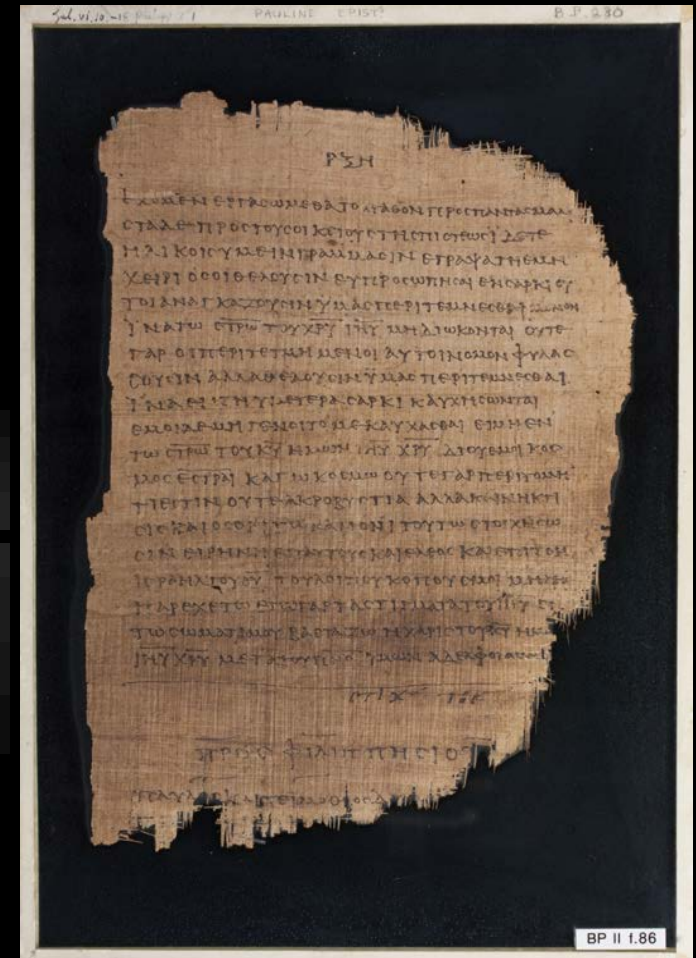 Gal. vi, 10.-18 Philipp. i 1 PAULINE EPIST. B.P. 230
ΡΞΗ
ΕΧΟΜΕΝ ΕΡΓΑϹΩΜΕΘΑ ΤΟ ΑΓΑΘΟΝ ΠΡΟϹ ΠΑΝΤΑϹ ΜΑΛΙ
ϹΤΑ ΔΕ ΠΡΟϹ ΤΟΥϹ ΟΙΚΕΙΟΥϹ ΤΗϹ ΠΙϹΤΕΩϹ ΙΔΕΤΕ
ΗΛΙΚΟΙϹ ΥΜΕΙΝ ΓΡΑΜΜΑϹΙΝ ΕΓΡΑΨΑ ΤΗ ΕΜΗ
ΧΕΙΡΙ ΟϹΟΙ ΘΕΛΟΥϹΙΝ ΕΥΠΡΟϹΩΠΗϹΑΙ ΕΝ ϹΑΡΚΙ ΟΥ
ΤΟΙ ΑΝΑΓΚΑΖΟΥϹΙΝ ΥΜΑϹ ΠΕΡΙΤΕΜΝΕϹΘΑΙ ΜΟΝΟΝ
ΙΝΑ ΤΩ ϹΤΡΩ ΤΟΥ ΧΡΥ ΙΗΥ ΜΗ ΔΙΩΚΟΝΤΑΙ ΟΥΤΕ
ΓΑΡ ΟΙ ΠΕΡΙΤΕΤΜΗΜΕΝΟΙ ΑΥΤΟΙ ΝΟΜΟΝ ΦΥΛΑϹ
ϹΟΥϹΙΝ ΑΛΛΑ ΘΕΛΟΥϹΙΝ ΥΜΑϹ ΠΕΡΙΤΕΜΝΕϹΘΑΙ
ΙΝΑ ΕΝ ΤΗ ΥΜΕΤΕΡΑ ϹΑΡΚΙ ΚΑΥΧΗϹΩΝΤΑΙ
ΕΜΟΙ ΔΕ ΜΗ ΓΕΝΟΙΤΟ ΜΕ ΚΑΥΧΑϹΘΑΙ ΕΙ ΜΗ ΕΝ
ΤΩ ϹΤΡΩ ΤΟΥ ΚΥ ΗΜΩΝ ΙΗΥ ΧΡΥ ΔΙ ΟΥ ΕΜΟΙ ΚΟϹ
ΜΟϹ ΕϹΤΡΑΙ ΚΑΓΩ ΚΟϹΜΩ ΟΥΤΕ ΓΑΡ ΠΕΡΙΤΟΜΗ
ΤΙ ΕϹΤΙΝ ΟΥΤΕ ΑΚΡΟΒΥϹΤΙΑ ΑΛΛΑ ΚΑΙΝΗ ΚΤΙ
ϹΙϹ ΚΑΙ ΟϹΟΙ ΤΩ ΚΑΝΟΝΙ ΤΟΥΤΩ ϹΤΟΙΧΗϹΩ
ϹΙΝ ΕΙΡΗΝΗ ΕΠ ΑΥΤΟΥϹ ΚΑΙ ΕΛΕΟϹ ΚΑΙ ΕΠΙ ΤΟΝ
ΙϹΡΑΗΛ ΤΟΥ ΘΥ ΤΟΥ ΛΟΙΠΟΥ ΚΟΠΟΥϹ ΜΟΙ
ΠΑΡΕΧΕΤΩ ΕΓΩ ΓΑΡ ΤΑ ϹΤΙΓΜΑΤΑ ΤΟΥ ΙΗΥ ΕΝ
ΤΩ ϹΩΜΑΤΙ ΜΟΥ ΒΑϹΤΑΖΩ Η ΧΑΡΙϹ ΤΟΥ ΚΥ ΗΜΩΝ
ΙΗΥ ΧΡΥ ΜΕΤΑ ΤΟΥ ΥΜΩΝ ΑΔΕΛΦΟΙ ΑΜΗΝ
ϹΤΙΧ
ΠΡΟϹ ΦΙΛΙΠΠΗϹΙΟΥϹ
ΠΑΥΛΟϹ ΚΑΙ ΤΕΙΜΟΘΕΟϹ
BP II f.86